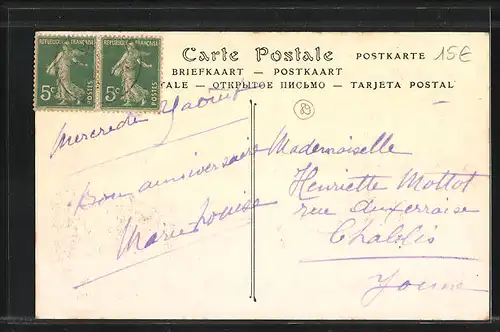 REPUBLIQUE FRANÇAISE REPUBLIQUE FRANÇAISE
5c POSTES 5c POSTES
Carte Postale POSTKARTE 15€
BRIEFKAART — POSTKAART
ОТКРЫТОЕ ПИСЬМО — TARJETA POSTAL
89
Mercredi
Bon anniversaire
Marie Louise
Mademoiselle
Henriette Mottot
rue Auxerroise
Chablis
Yonne